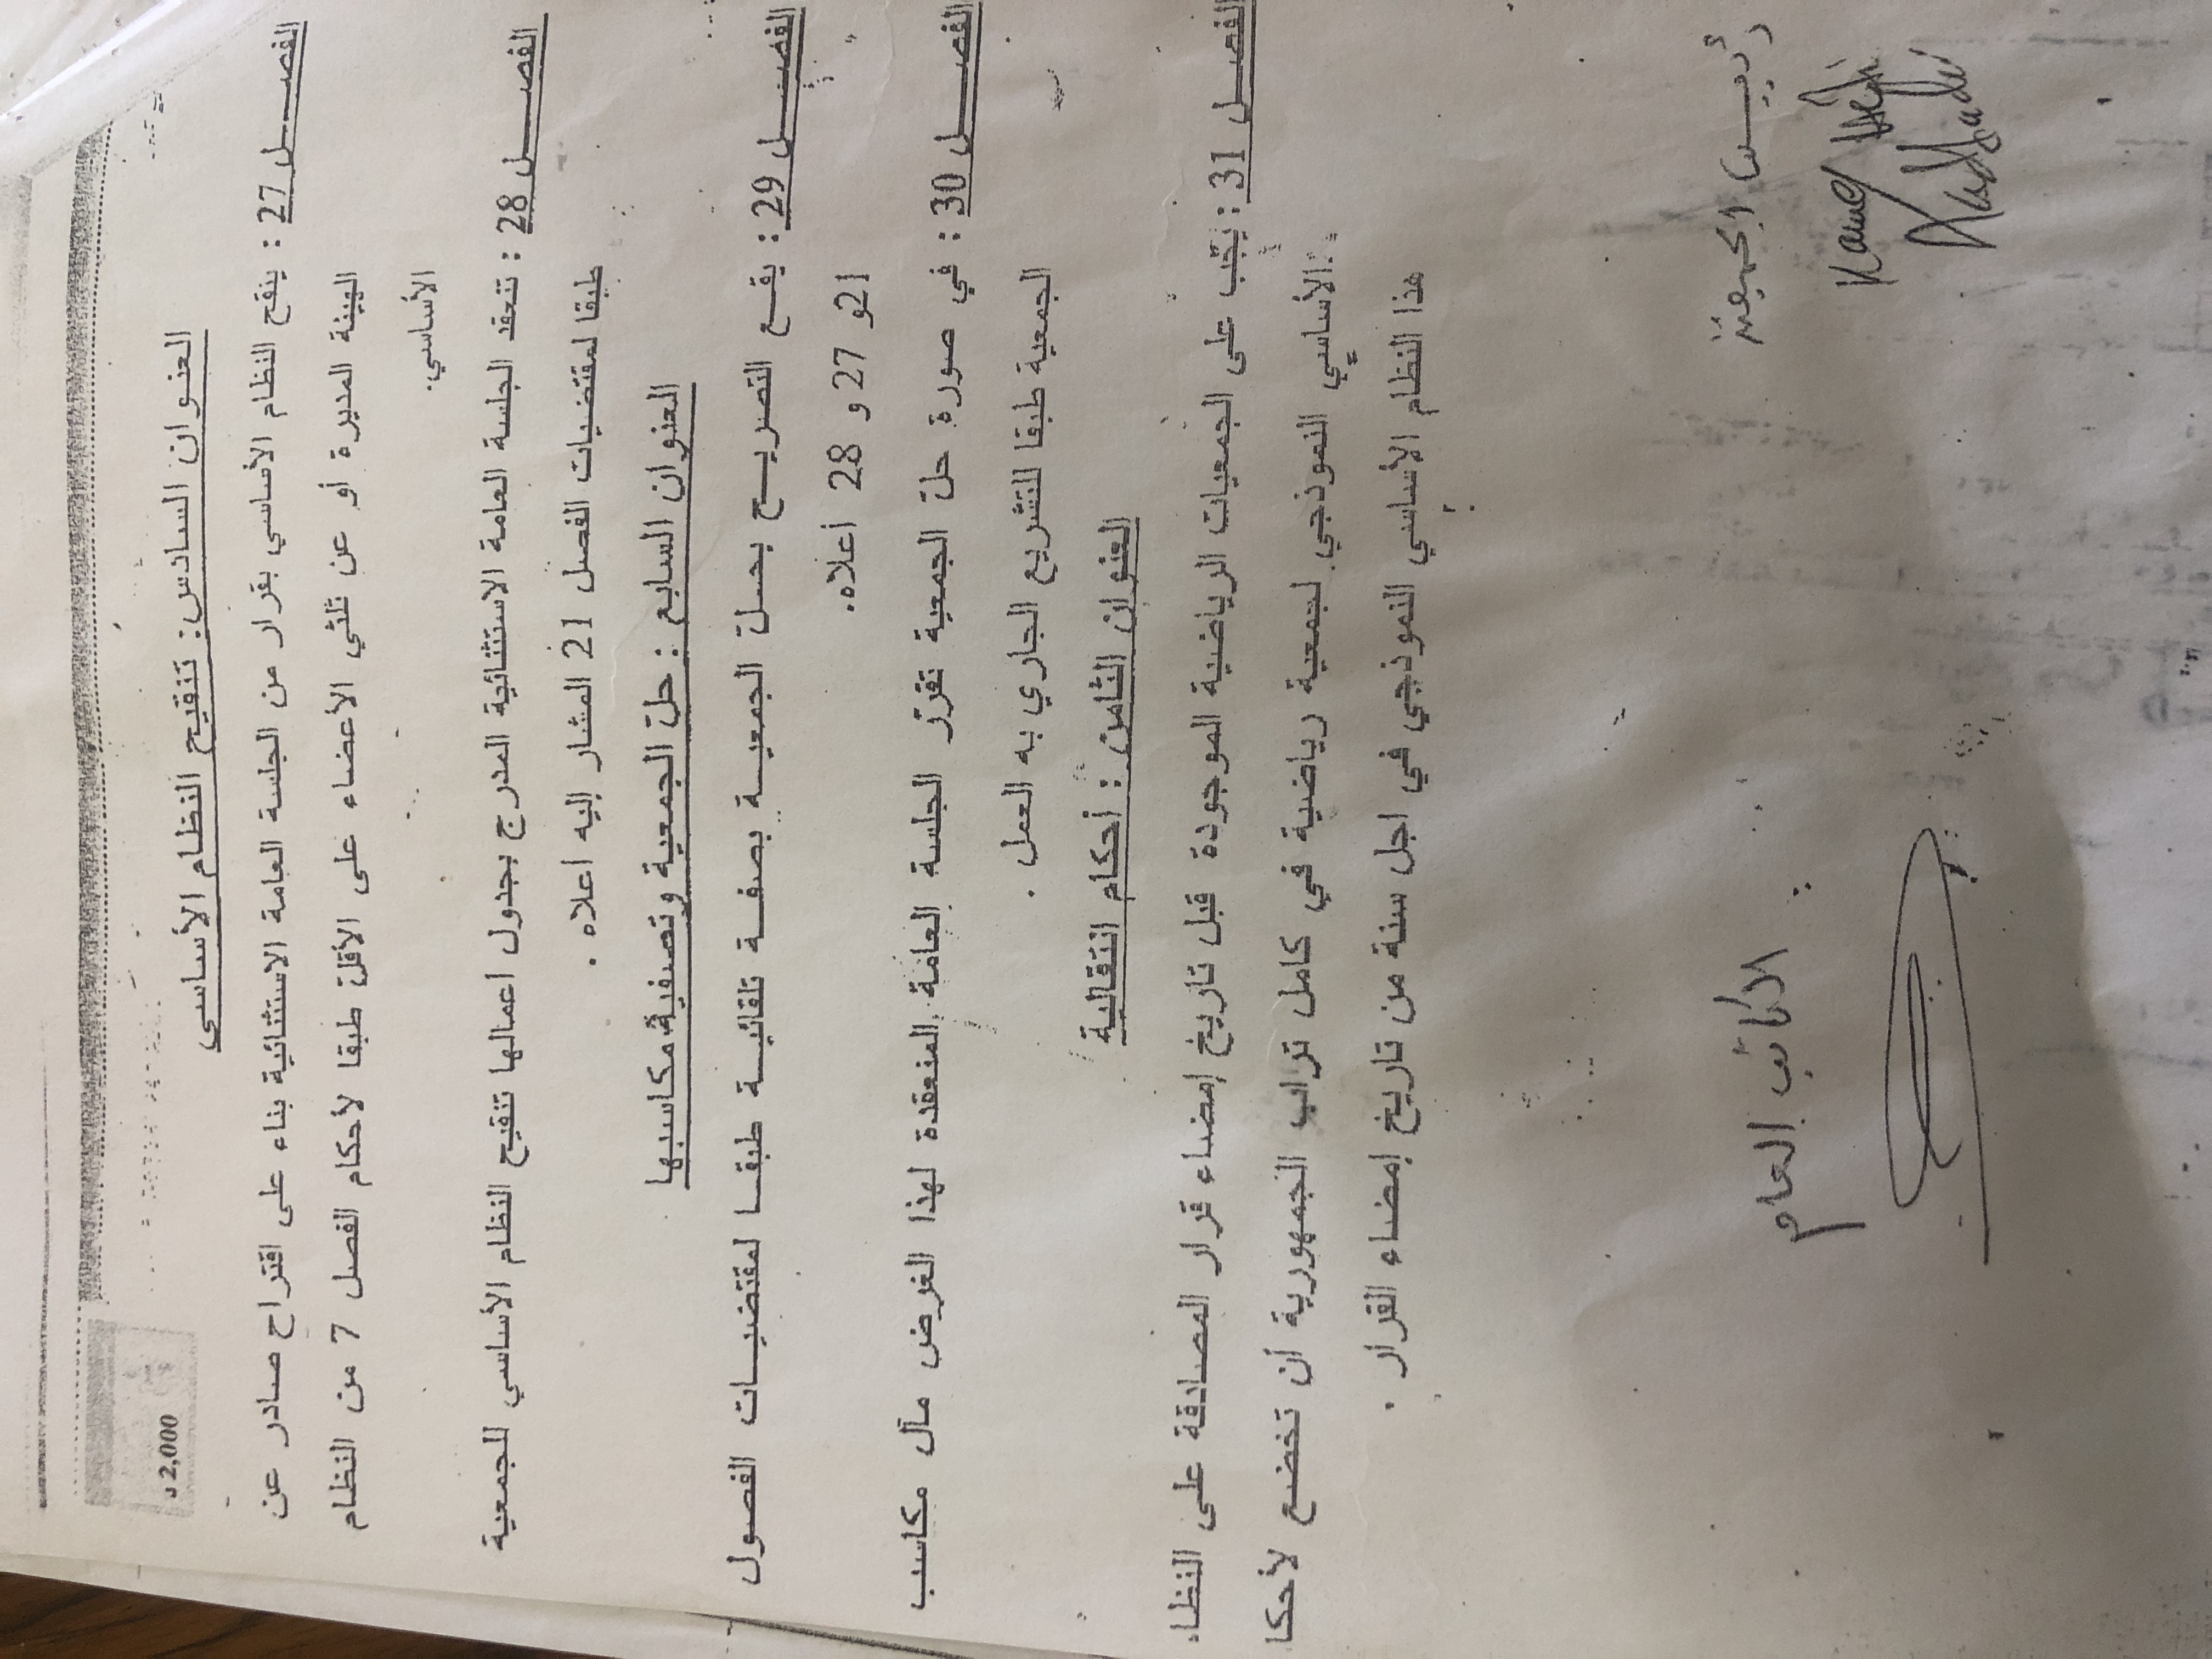 2,000 د
العنوان السادس: تنقيح النظام الأساسي
الفصل 27 : ينقح النظام الأساسي بقرار من الجلسة العامة الاستثنائية بناء على اقتراح صادر عن
الهيئة المديرة أو عن ثلثي الأعضاء على الأقل طبقا لأحكام الفصل 7 من النظام
الأساسي.
الفصل 28 : تنعقد الجلسة العامة الاستثنائية المدرج بجدول اعمالها تنقيح النظام الأساسي للجمعية
طبقا لمقتضيات الفصل 21 المشار إليه اعلاه .
العنوان السابع : حل الجمعية وتصفية مكاسبها
الفصل 29 : يقع التصريح بحل الجمعية بصفة تلقائية طبقا لمقتضيات الفصول
21و 27 و 28 أعلاه.
الفصل 30 : في صورة حل الجمعية تقرر الجلسة العامة المنعقدة لهذا الغرض مآل مكاسب
الجمعية طبقا للتشريع الجاري به العمل .
العنوان الثامن : أحكام انتقالية
الفصل 31 : يجب على الجمعيات الرياضية الموجودة قبل تاريخ إمضاء قرار المصادقة على النظا
الأساسي النموذجي لجمعية رياضية في كامل تراب الجمهورية أن تخضع لأحكا
هذا النظام الأساسي النموذجي في اجل سنة من تاريخ إمضاء القرار .
رئيس الجمعية
الكاتب العام
Kamel